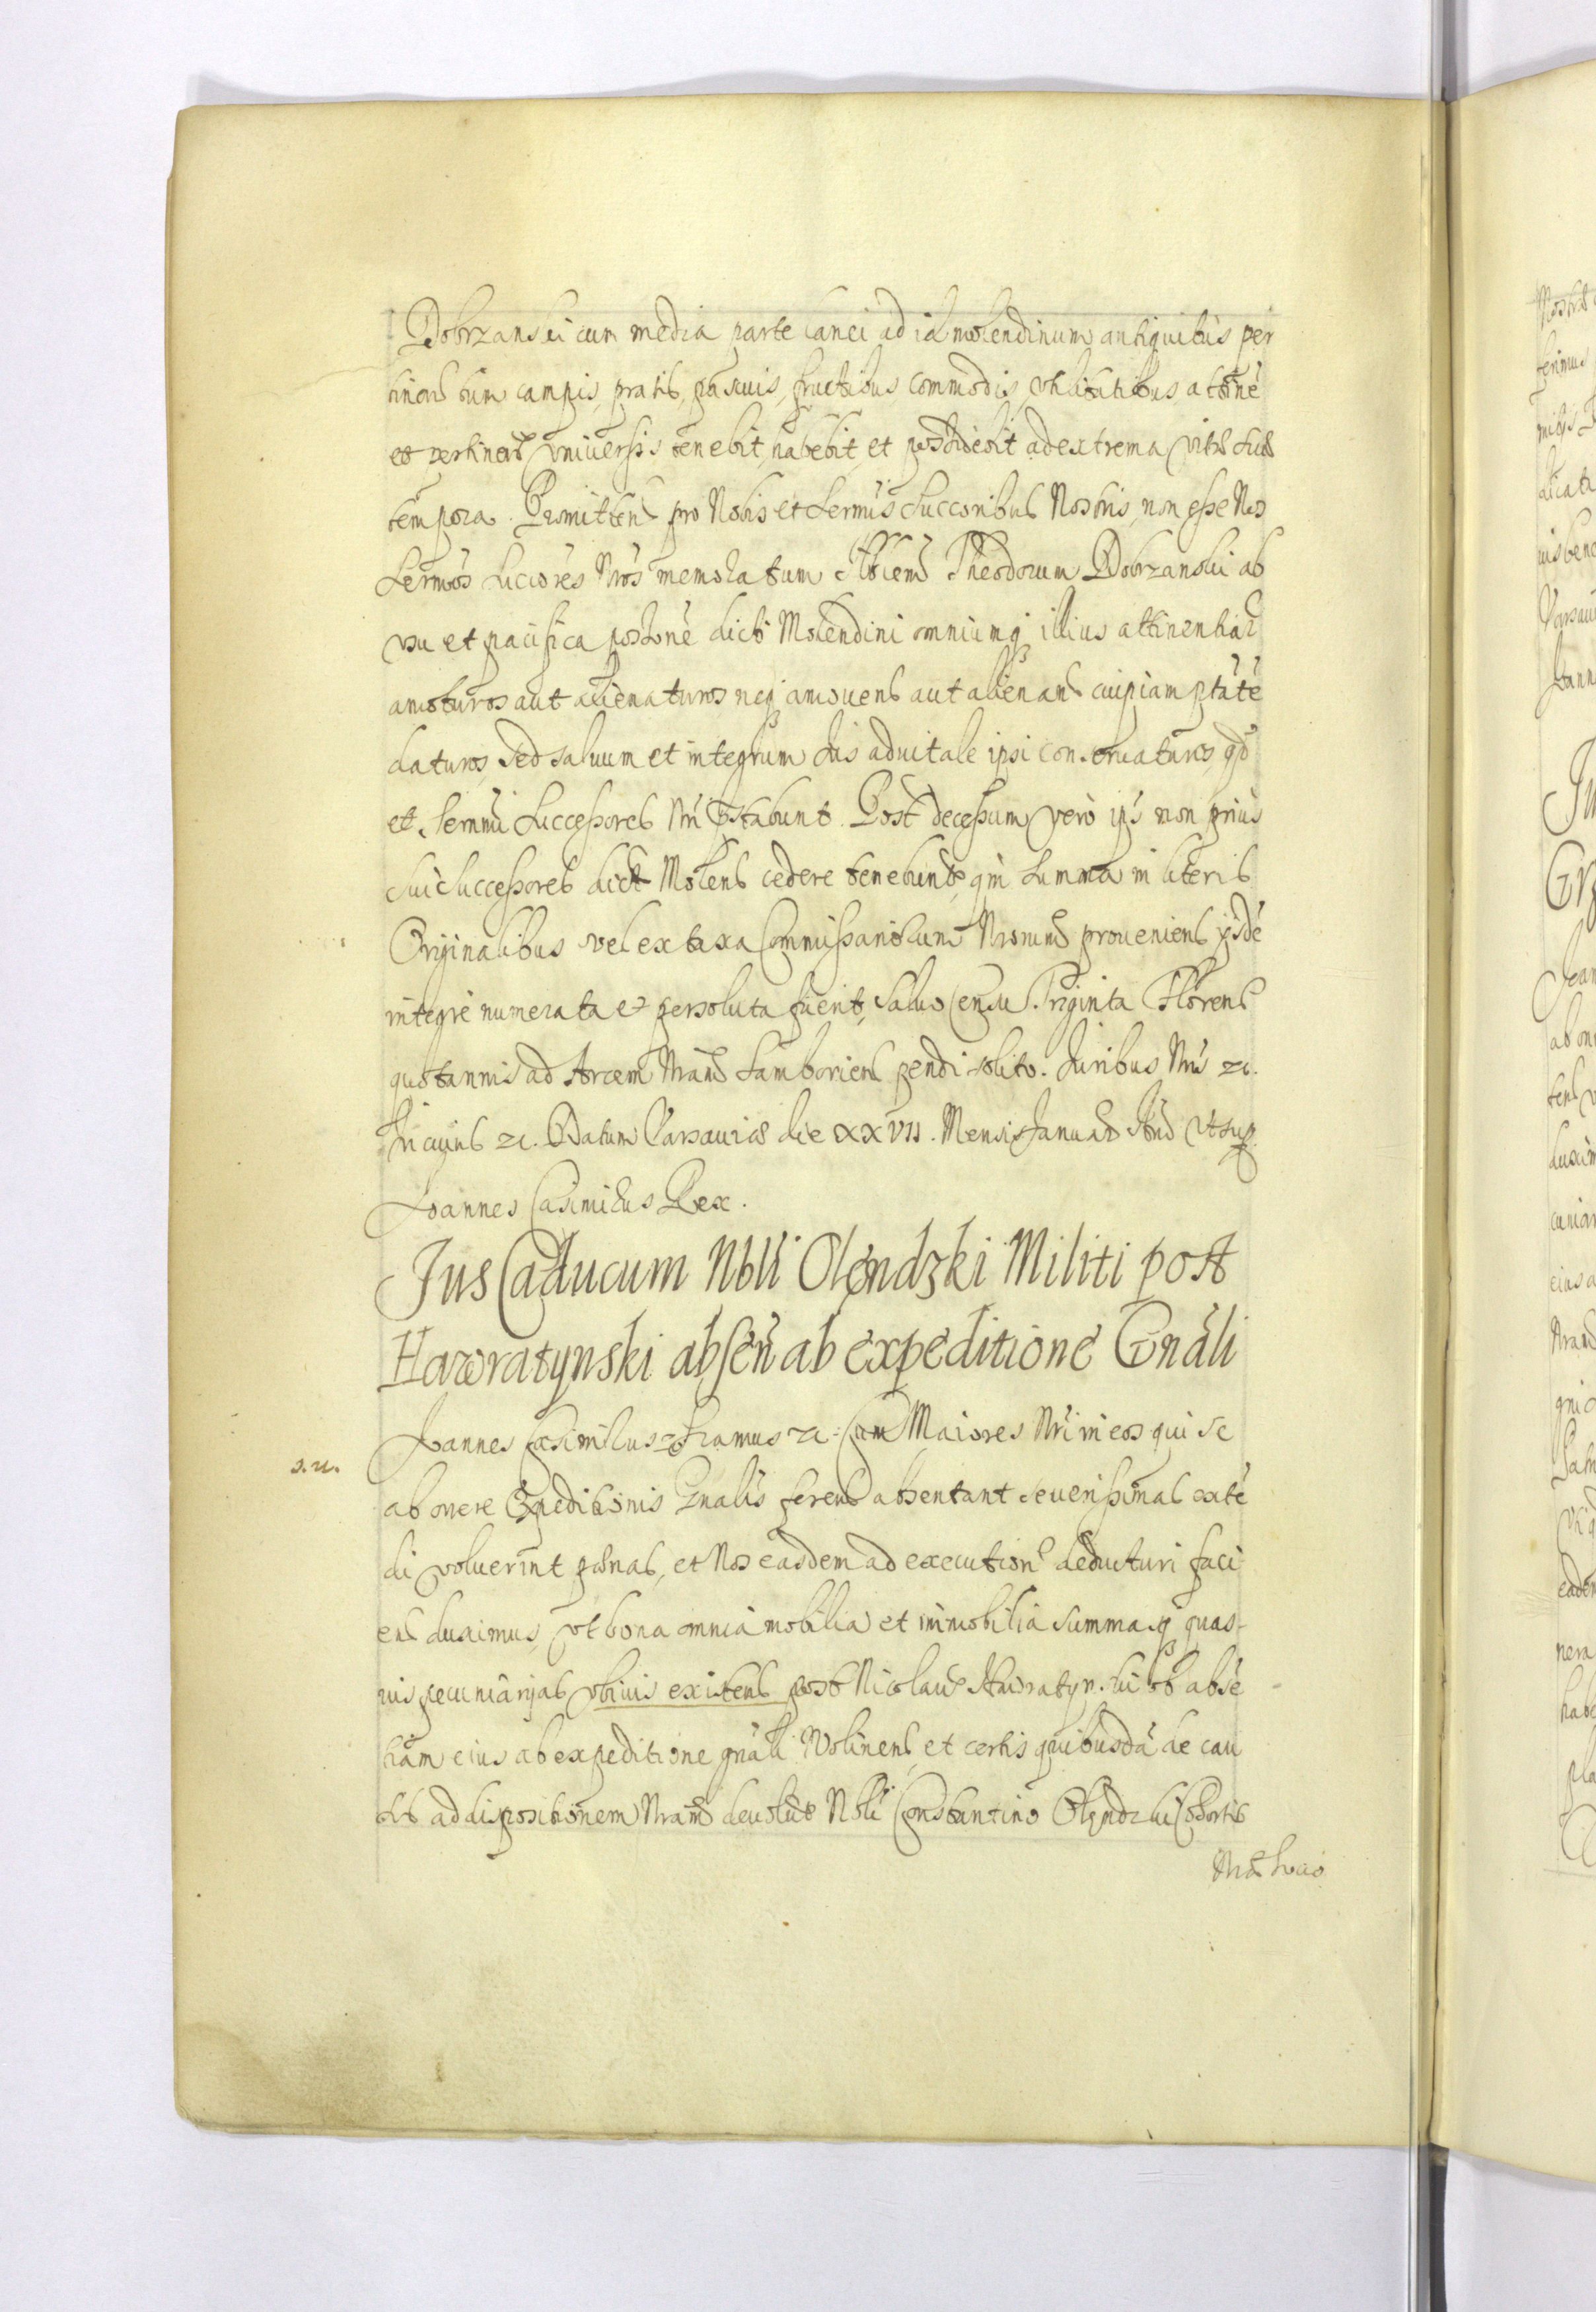 Dobrzanski cum media parte lanei ad id molendinum antiquitus per
tinens cum campis, pratis, pascuis, fructibus commodis, vtilitatibus attinē
et pertinens vniuersis tenebit, habebit, et possidebit ad extrema vitæ suæ
tempora. Promittens pro Nobis et Sermis Succoribus Nostris, non esse Nos
Sermos Succores Nros memoratum Theodorum Dobrzanski ab
vsu et pacifica possone dicti Molendini omniumq illius attinentiar
amoturos aut alienaturos neq amouens aut alienans cuipiam ptatē
daturos, Sed saluum et integrum Jus aduitale ipsi conseruaturos, qd
et Sermi Successores Nri pstabunt. Post decessum verò ips non prius
sui Successores dict Molens cedere tenebunt, qm Summa in literis
Originalibus vel ex taxa Commissariorum Nrorum proueniens ijsdē
integrè numerata et persoluta fuerit, Saluo Censu Triginta Florens
quotannis ad Arcem Nram Samboriens pendi solito. Juribus Nris zc.
In cuius zc. Datum Varsauiæ die XXVII. Mensis Januar Ano vt sup
Joannes Casimirus Rex.
Jus Caducum Nbli Olendzki Militi post
Hawratynski absen ab expeditione Gnali
s. u.
Joannes Casimirus zc Cum Maiores Nri in eos qui se
ab onere Expeditionis Gnalis ferend absentant seuerissimas extē
di voluerint pœnas, et Nos easdem ad execution deducturi faci
end duximus, vt bona omnia mobilia et immobilia summasq quas-
uis pecuniarijas vbiuis existens post Nicolau Hawratynski ob absē
tiam eius ab expeditione gnali Wolinens et certis quibusdā de cau
sis ad dispositionem Nram deuolut Nbli Constantino Olendzki Cohortis